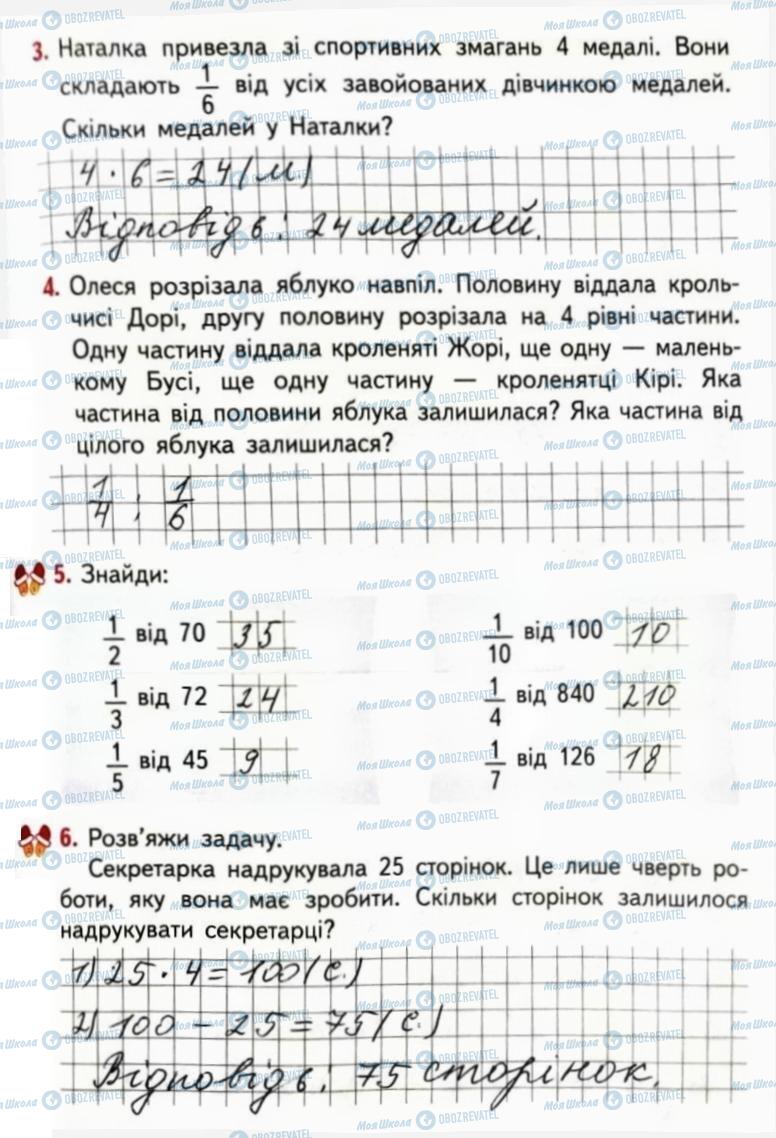 3. Наталка привезла зі спортивних змагань 4 медалі. Вони
складають 1/6 від усіх завойованих дівчинкою медалей.
Скільки медалей у Наталки?
4 · 6 = 24 (м)
Відповідь: 24 медалей.
4. Олеся розрізала яблуко навпіл. Половину віддала кроль-
чисі Дорі, другу половину розрізала на 4 рівні частини.
Одну частину віддала кроленяті Жорі, ще одну — малень-
кому Бусі, ще одну частину — кроленятці Кірі. Яка
частина від половини яблука залишилася? Яка частина від
цілого яблука залишилася?
1/4 ; 1/6
5. Знайди:
1/2 від 70 35
1/10 від 100 10
1/3 від 72 24
1/4 від 840 210
1/5 від 45 9
1/7 від 126 18
6. Розв'яжи задачу.
Секретарка надрукувала 25 сторінок. Це лише чверть ро-
боти, яку вона має зробити. Скільки сторінок залишилося
надрукувати секретарці?
1) 25 · 4 = 100 (с.)
2) 100 - 25 = 75 (с.)
Відповідь: 75 сторінок.
Моя Школа OBOZREVATEL